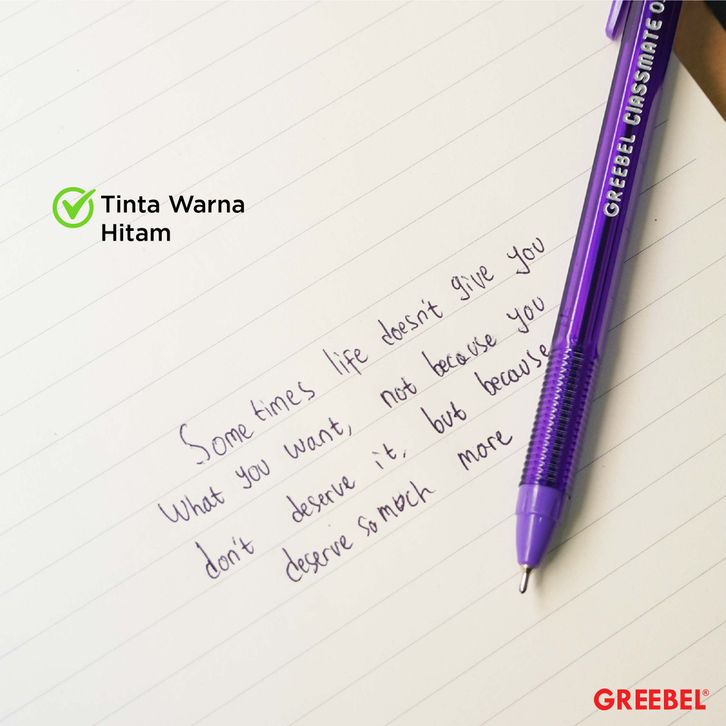 GREEBEL CLASSMATE
Tinta Warna
Hitam
Some times life doesn't give you
What you want, not because you
don't deserve it, but because
deserve so much more
GREEBEL®